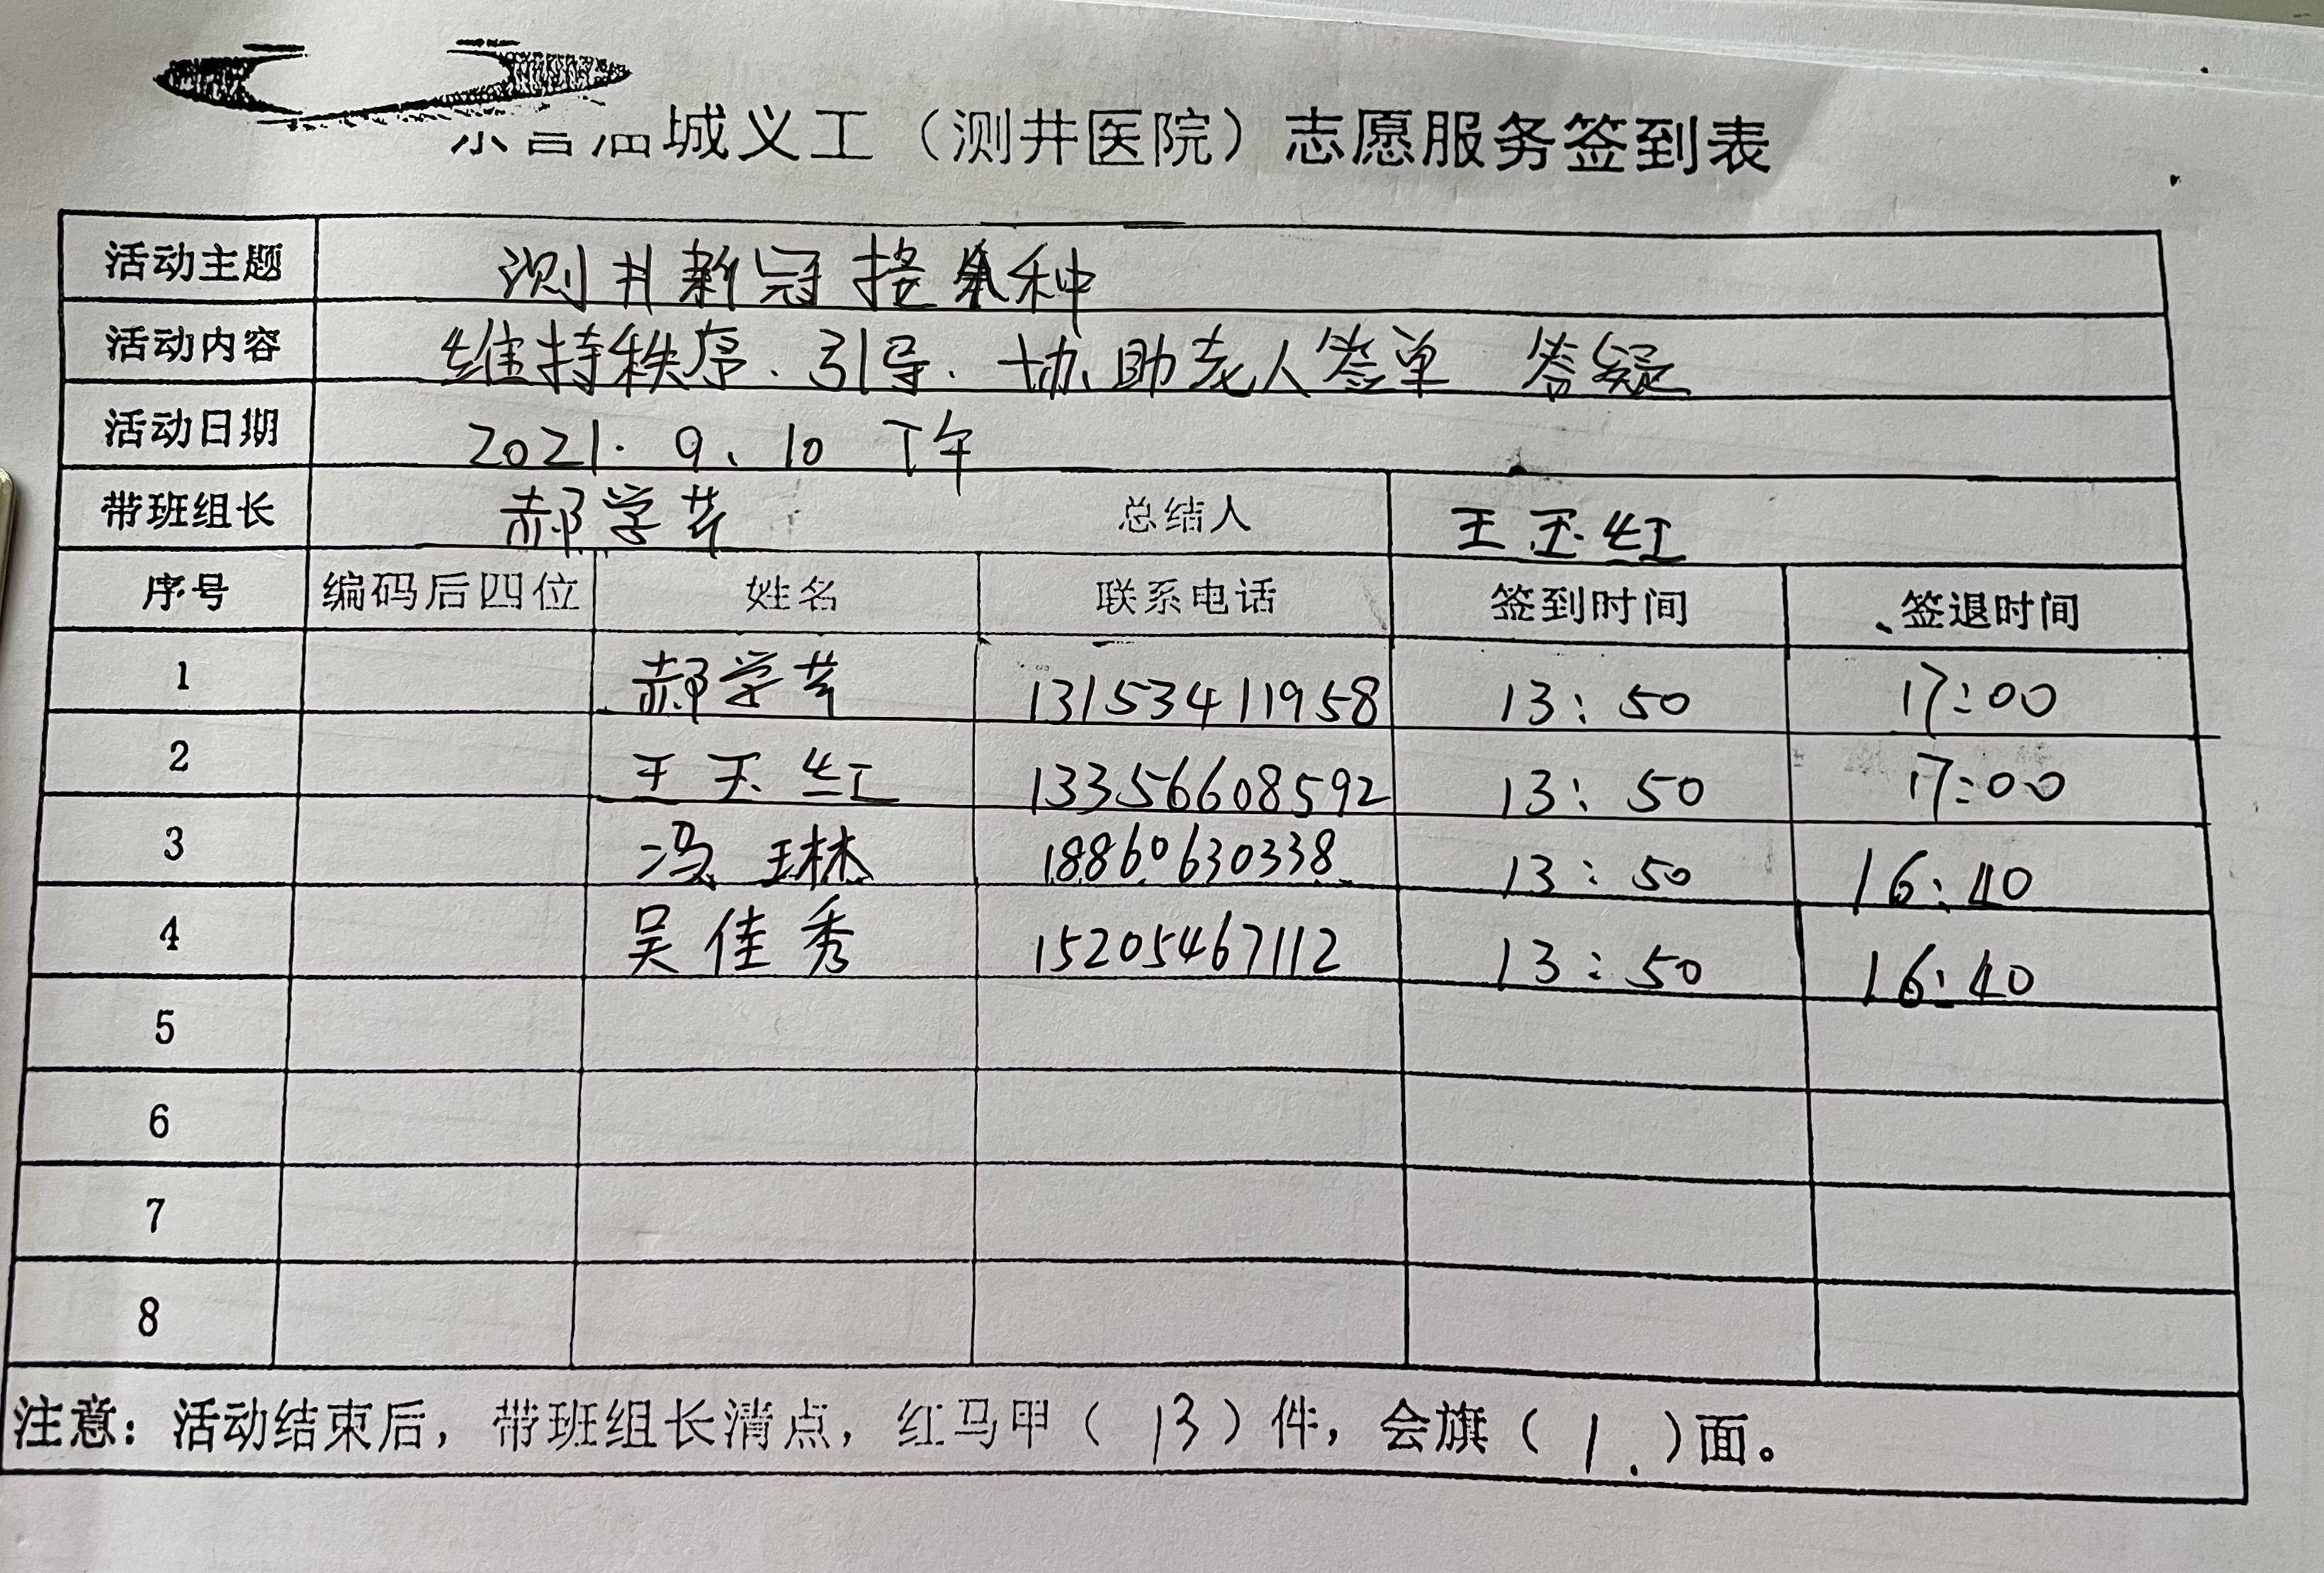 城义工（测井医院）志愿服务签到表
活动主题 测井新冠接种
活动内容 维持秩序、引导、协助老人签单 答疑
活动日期 2021.9.10 下午
带班组长 郝学芹 总结人 王玉红
序号 编码后四位 姓名 联系电话 签到时间 签退时间
1 郝学芹 13153411958 13:50 17:00
2 王玉红 13356608592 13:50 17:00
3 冯琳 18860630338 13:50 16:40
4 吴佳秀 15205467112 13:50 16:40
5
6
7
8
注意：活动结束后，带班组长清点，红马甲（13）件，会旗（1.）面。